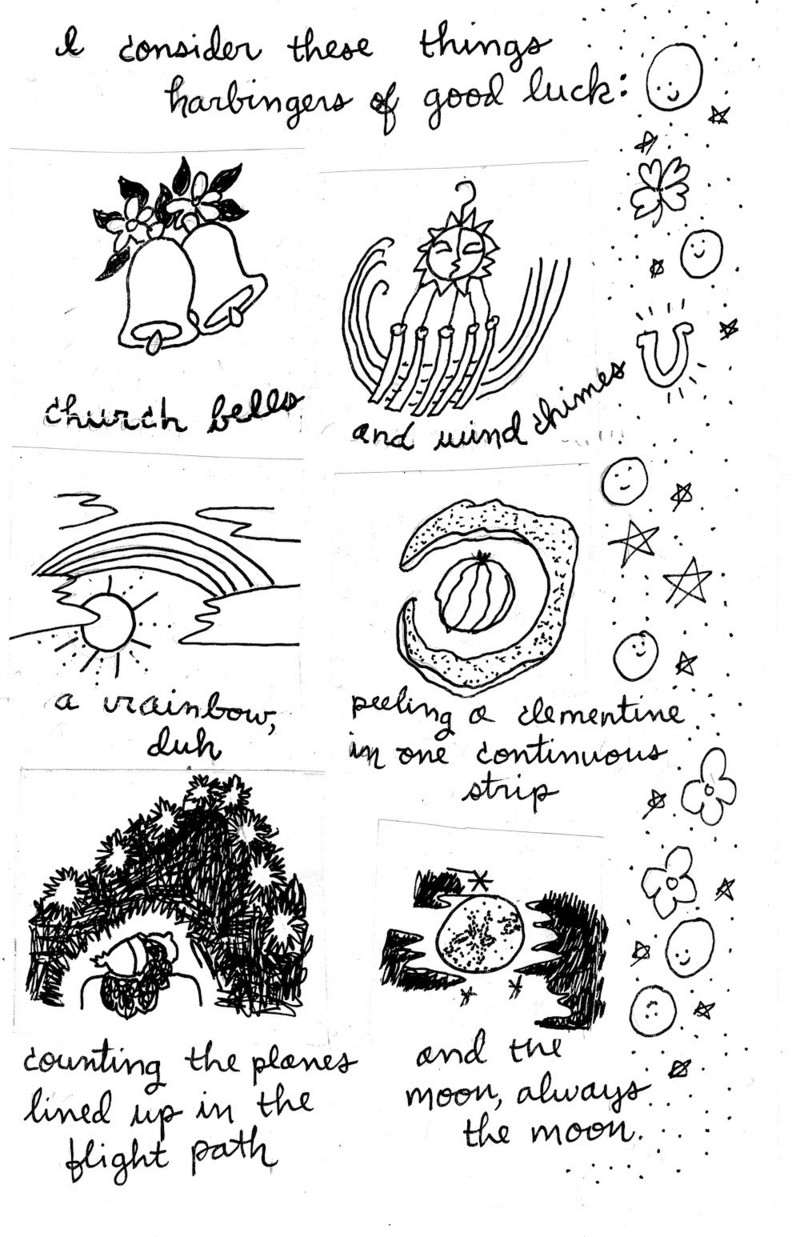 I consider these things
harbingers of good luck:
church bells
and wind chimes
a rainbow,
duh
peeling a clementine
in one continuous
strip
counting the planes
lined up in the
flight path
and the
moon, always
the moon.